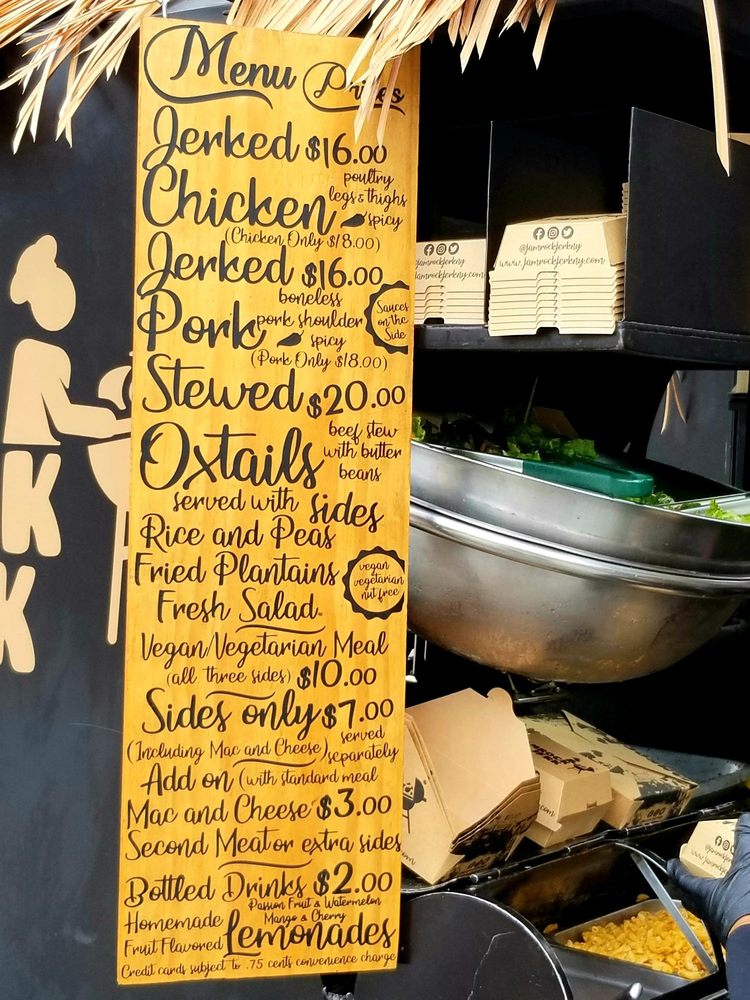 Menu Prices
Jerked $16.00
Chicken
poultry
legs & thighs
spicy
(Chicken Only $18.00)
Jerked $16.00
Pork
boneless
pork shoulder
spicy
(Pork Only $18.00)
Sauces
on the
Side
Stewed $20.00
Oxtails
beef stew
with butter
beans
served with sides
Rice and Peas
Fried Plantains
Fresh Salad
vegan
vegetarian
nut free
Vegan/Vegetarian Meal
(all three sides) $10.00
Sides only $7.00
(Including Mac and Cheese)
served
separately
Add on (with standard meal
Mac and Cheese $3.00
Second Meat or extra sides
Bottled Drinks $2.00
Passion Fruit & Watermelon
Mango & Cherry
Homemade
Fruit Flavored
Lemonades
Credit cards subject to .75 cents convenience charge
@jamrockjerkny
www.jamrockjerkny.com
jamrockjerkny.com
K
K